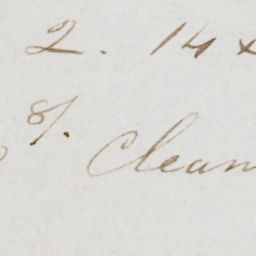 2. 14 x
8/. Clean